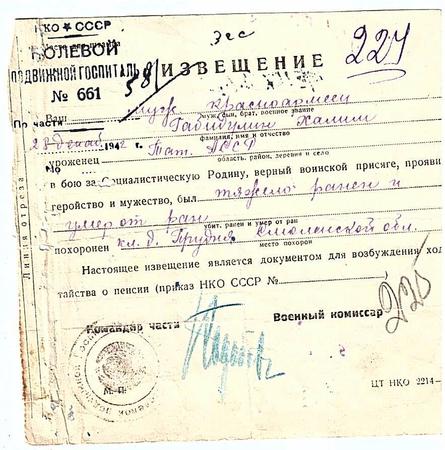 НКО ★ СССР
ПОЛЕВОЙ
ПОДВИЖНОЙ ГОСПИТАЛЬ
№ 661
58/
ИЗВЕЩЕНИЕ
224
По части
Ваш муж красноармеец
муж, сын, брат, военное звание
Габидулин Халим
фамилия, имя и отчество
28 декаб 1942 г.
уроженец Тат. АССР
область, район, деревня и село
№
в бою за Социалистическую Родину, верный воинской присяге, прояви
геройство и мужество, был тяжело ранен и
умер от ран
убит, ранен и умер от ран
похоронен кл. д. Прудня Смоленской обл.
место похорон
Настоящее извещение является документом для возбуждения ход
тайства о пенсии (приказ НКО СССР №
Командир части
Военный комиссар
225
М. П.
ЦТ НКО 2214—
Линия отреза